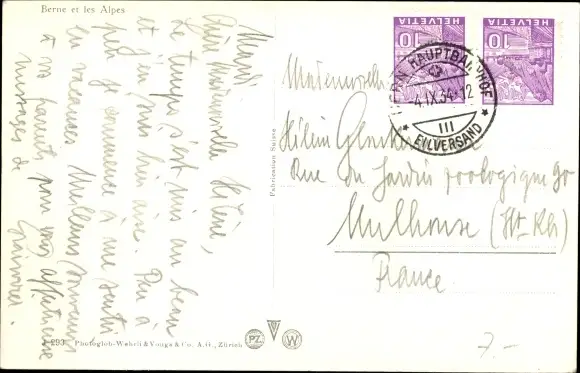 Berne et les Alpes
Mardi
Chère Mademoiselle Hélène,
Le temps s'est mis au beau
et j'en suis bien aise. Peu à
peu je commence à me sentir
en vacances. Meilleurs souvenirs
à vos parents pour vous affectueuse
messages de
293 Photoglob-Wehrli & Vouga & Co. A.G., Zürich
Fabrication Suisse
PZ
W
HELVETIA
10
HELVETIA
10
BERN HAUPTBAHNHOF
-4.IX.34.-12
III
* EILVERSAND *
Mademoiselle
Hélène
Rue du Jardin zoologique 90
Mulhouse (Ht Rh)
France
7.-